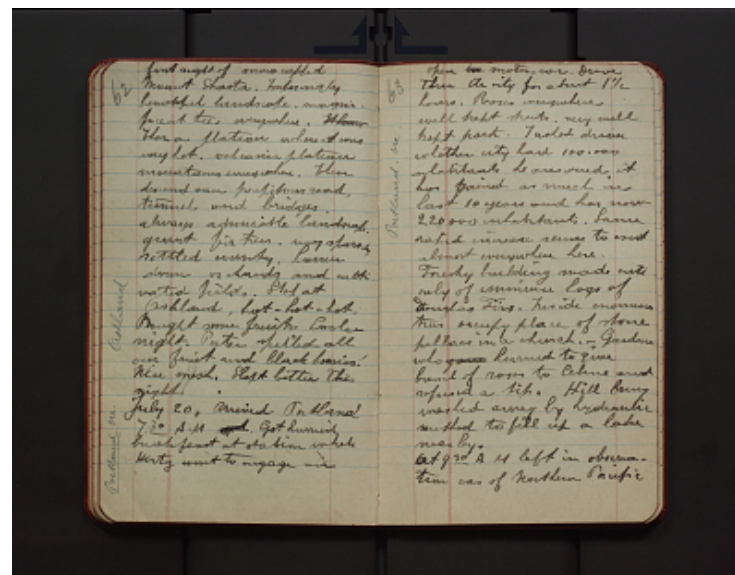 62
first sight of snow capped
Mount Shasta. Increasingly
beautiful landscape. magni-
ficent trees everywhere.
Then a plateau where it was
very hot. volcanic plateau
mountains everywhere. Then
descend over precipitous road,
tunnels and bridges.
always admirable landscape.
great fir trees. very sparsely
settled country. Lower
down orchards and culti
vated fields. Stop at
Ashland, hot-hot-hot.
Bought some fruits. Cooler
night. Porter spilled all
our fruit and black berries!
Nice mesh. Slept better this
night.
July 20. Arrived Portland
7.30 A M Got hurried
breakfast at station while
Hertz went to engage an
Ashland
Portland ore
63
open motor car. Drove
thru the city for about 1½
hours. Roses everywhere
well kept streets. very well
kept park. I asked driver
whether city had 100.000
inhabitants he answered, it
has gained as much in
last 10 years and has now
220 000 inhabitants. Same
rapid increase seems to exist
almost everywhere here.
Forestry building made enti
rely of immense logs of
Douglas Firs. Inside immense
trees occupy place of stone
pillars in a church. – Gardener
who hurried to give
bunch of roses to Celine and
refused a tip. Hill being
washed away by hydraulic
method to fill up a lake
nearby.
At 9 30 A M left in observa-
tion car of Northern Pacific
Portland ore